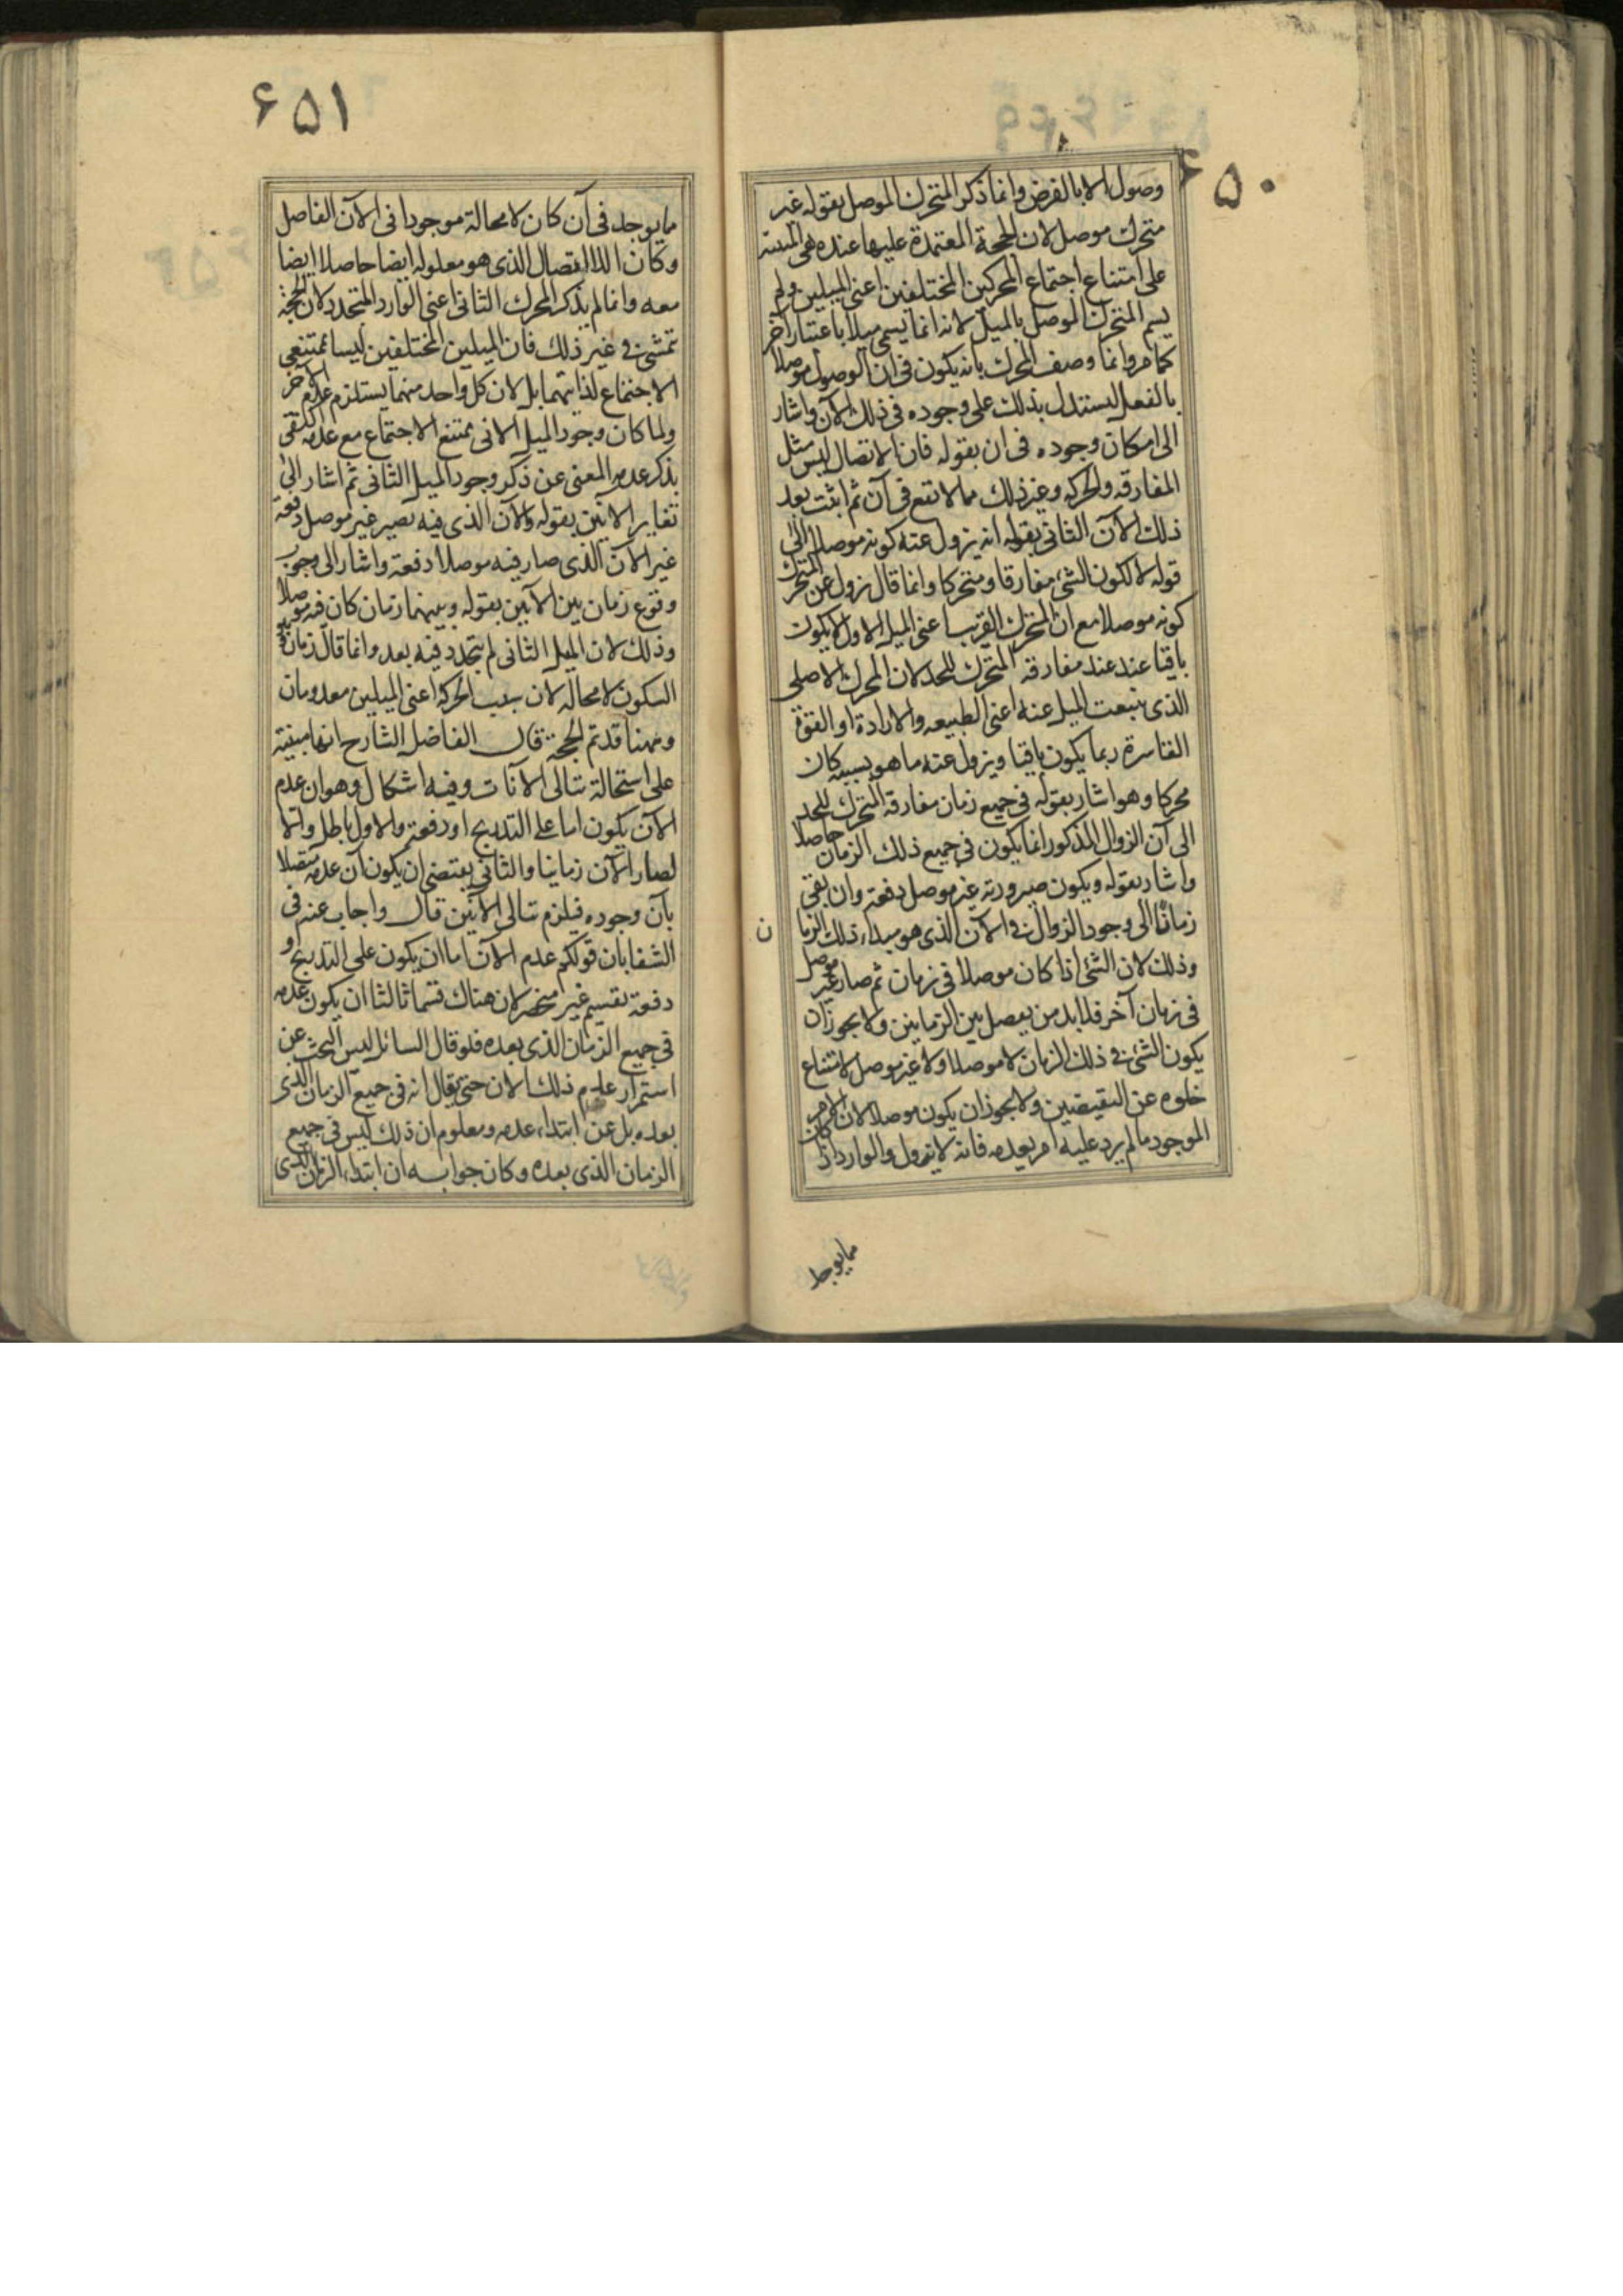 ۶۵۰
وصول الا بالفرض وانما ذكر المتحرك الموصل بقوله غير
متحرك موصل لان الحجة المعتمدة عليها عنده هى المبنية
على امتناع اجتماع المحركين المختلفين اعنى الميلين ولم
يسم المتحرك الموصل بالميل لانه انما يسمى ميلا باعتبار آخر
كما مر وانما وصف المحرك بانه يكون فى ان الوصول موصلا
بالفعل ليستدل بذلك على وجوده فى ذلك الآن واشار
الى امكان وجوده فى ان بقوله فان الاتصال ليس مثل
المفارقه والحركه وغير ذلك مما لا تقع فى آن ثم اثبت بعد
ذلك الآن الثانى بقوله انه يزول عنه كونه موصلا الى
قوله لا لكون الشئ مفارقا ومتحركا وانما قال يزول عن المتحرك
كونه موصلا مع ان المتحرك القريب اعنى الميل الاول لا يكون
باقيا عند عند مفارقه المتحرك للحد لان المحرك الاصلى
الذى ينبعث الميل عنه اعنى الطبيعه والارادة او القوة
القاسرة ربما يكون باقيا ويزول عنه ما هو بسببه كان
محركا وهو اشار بقوله فى جميع زمان مفارقة المتحرك للحد
الى آن الزوال المذكور انما يكون فى جميع ذلك الزمان حاصلا
واشار بقوله ويكون صيرورته غير موصل دفعة وان بقى
زمانا الى وجود الزوال فى الآن الذى هو مبداء ذلك الزما
ن
وذلك لان الشئ اذا كان موصلا فى زمان ثم صار غير موصل
فى زمان آخر فلا بد من يفصل بين الزمانين ولا يجوز ان
يكون الشئ فى ذلك الزمان لا موصلا ولا غير موصل لامتناع
خلوه عن النقيضين ولا يجوز ان يكون موصلا لان الامر
الموجود ما لم يرد عليه امر يعدمه فانه لا يزول والوارد اذ كان
مما يوجد
۶۵۱
ما يوجد فى آن كان لا محالة موجودا فى الآن الفاصل
وكان اللا اتصال الذى هو معلوله ايضا حاصلا ايضا
معه وانما لم يذكر المحرك الثانى اعنى الوارد المتجدد لان الحجة
تمشى فى غير ذلك فان الميلين المختلفين ليسا ممتنعى
الاجتماع لذاتهما بل لان كل واحد منهما يستلزم عدم الآخر
ولما كان وجود الميل الآنى يمتنع الاجتماع مع عدمه اكتفى
بذكر عدمه المعنى عن ذكر وجود الميل الثانى ثم اشار الى
تغاير الآنين بقوله والآن الذى فيه يصير غير موصل دفعة
غير الآن الذى صار فيه موصلا دفعة واشار الى وجوب
وقوع زمان بين الآنين بقوله وبينهما زمان كان فيه موصلا
وذلك لان الميل الثانى لم يتجدد فيه بعد وانما قال زمان
السكون لا محاله لان سبب الحركه اعنى الميلين معدومان
وههنا قد تم الحجة قال الفاضل الشارح انها مبنية
على استحالة تتالى الآنات وفيه اشكال وهو ان عدم
الآن يكون اما على التدريج او دفعة والاول باطل والا
لصار الآن زمانيا والثانى يقتضى ان يكون آن عدمه متصلا
بآن وجوده فيلزم تتالى الآنين قال واجاب عنه فى
الشفا بان قولكم عدم الآن اما ان يكون على التدريج او
دفعة تقسيم غير منحصر لان هناك قسما ثالثا ان يكون عدمه
فى جميع الزمان الذى بعده فلو قال السائل ليس البحث عن
استمرار عدم ذلك الآن حتى يقال انه فى جميع الزمان الذى
بعده بل عن ابتداء عدمه ومعلوم ان ذلك ليس فى جميع
الزمان الذى بعده وكان جوابه ان ابتداء الزمان الذى